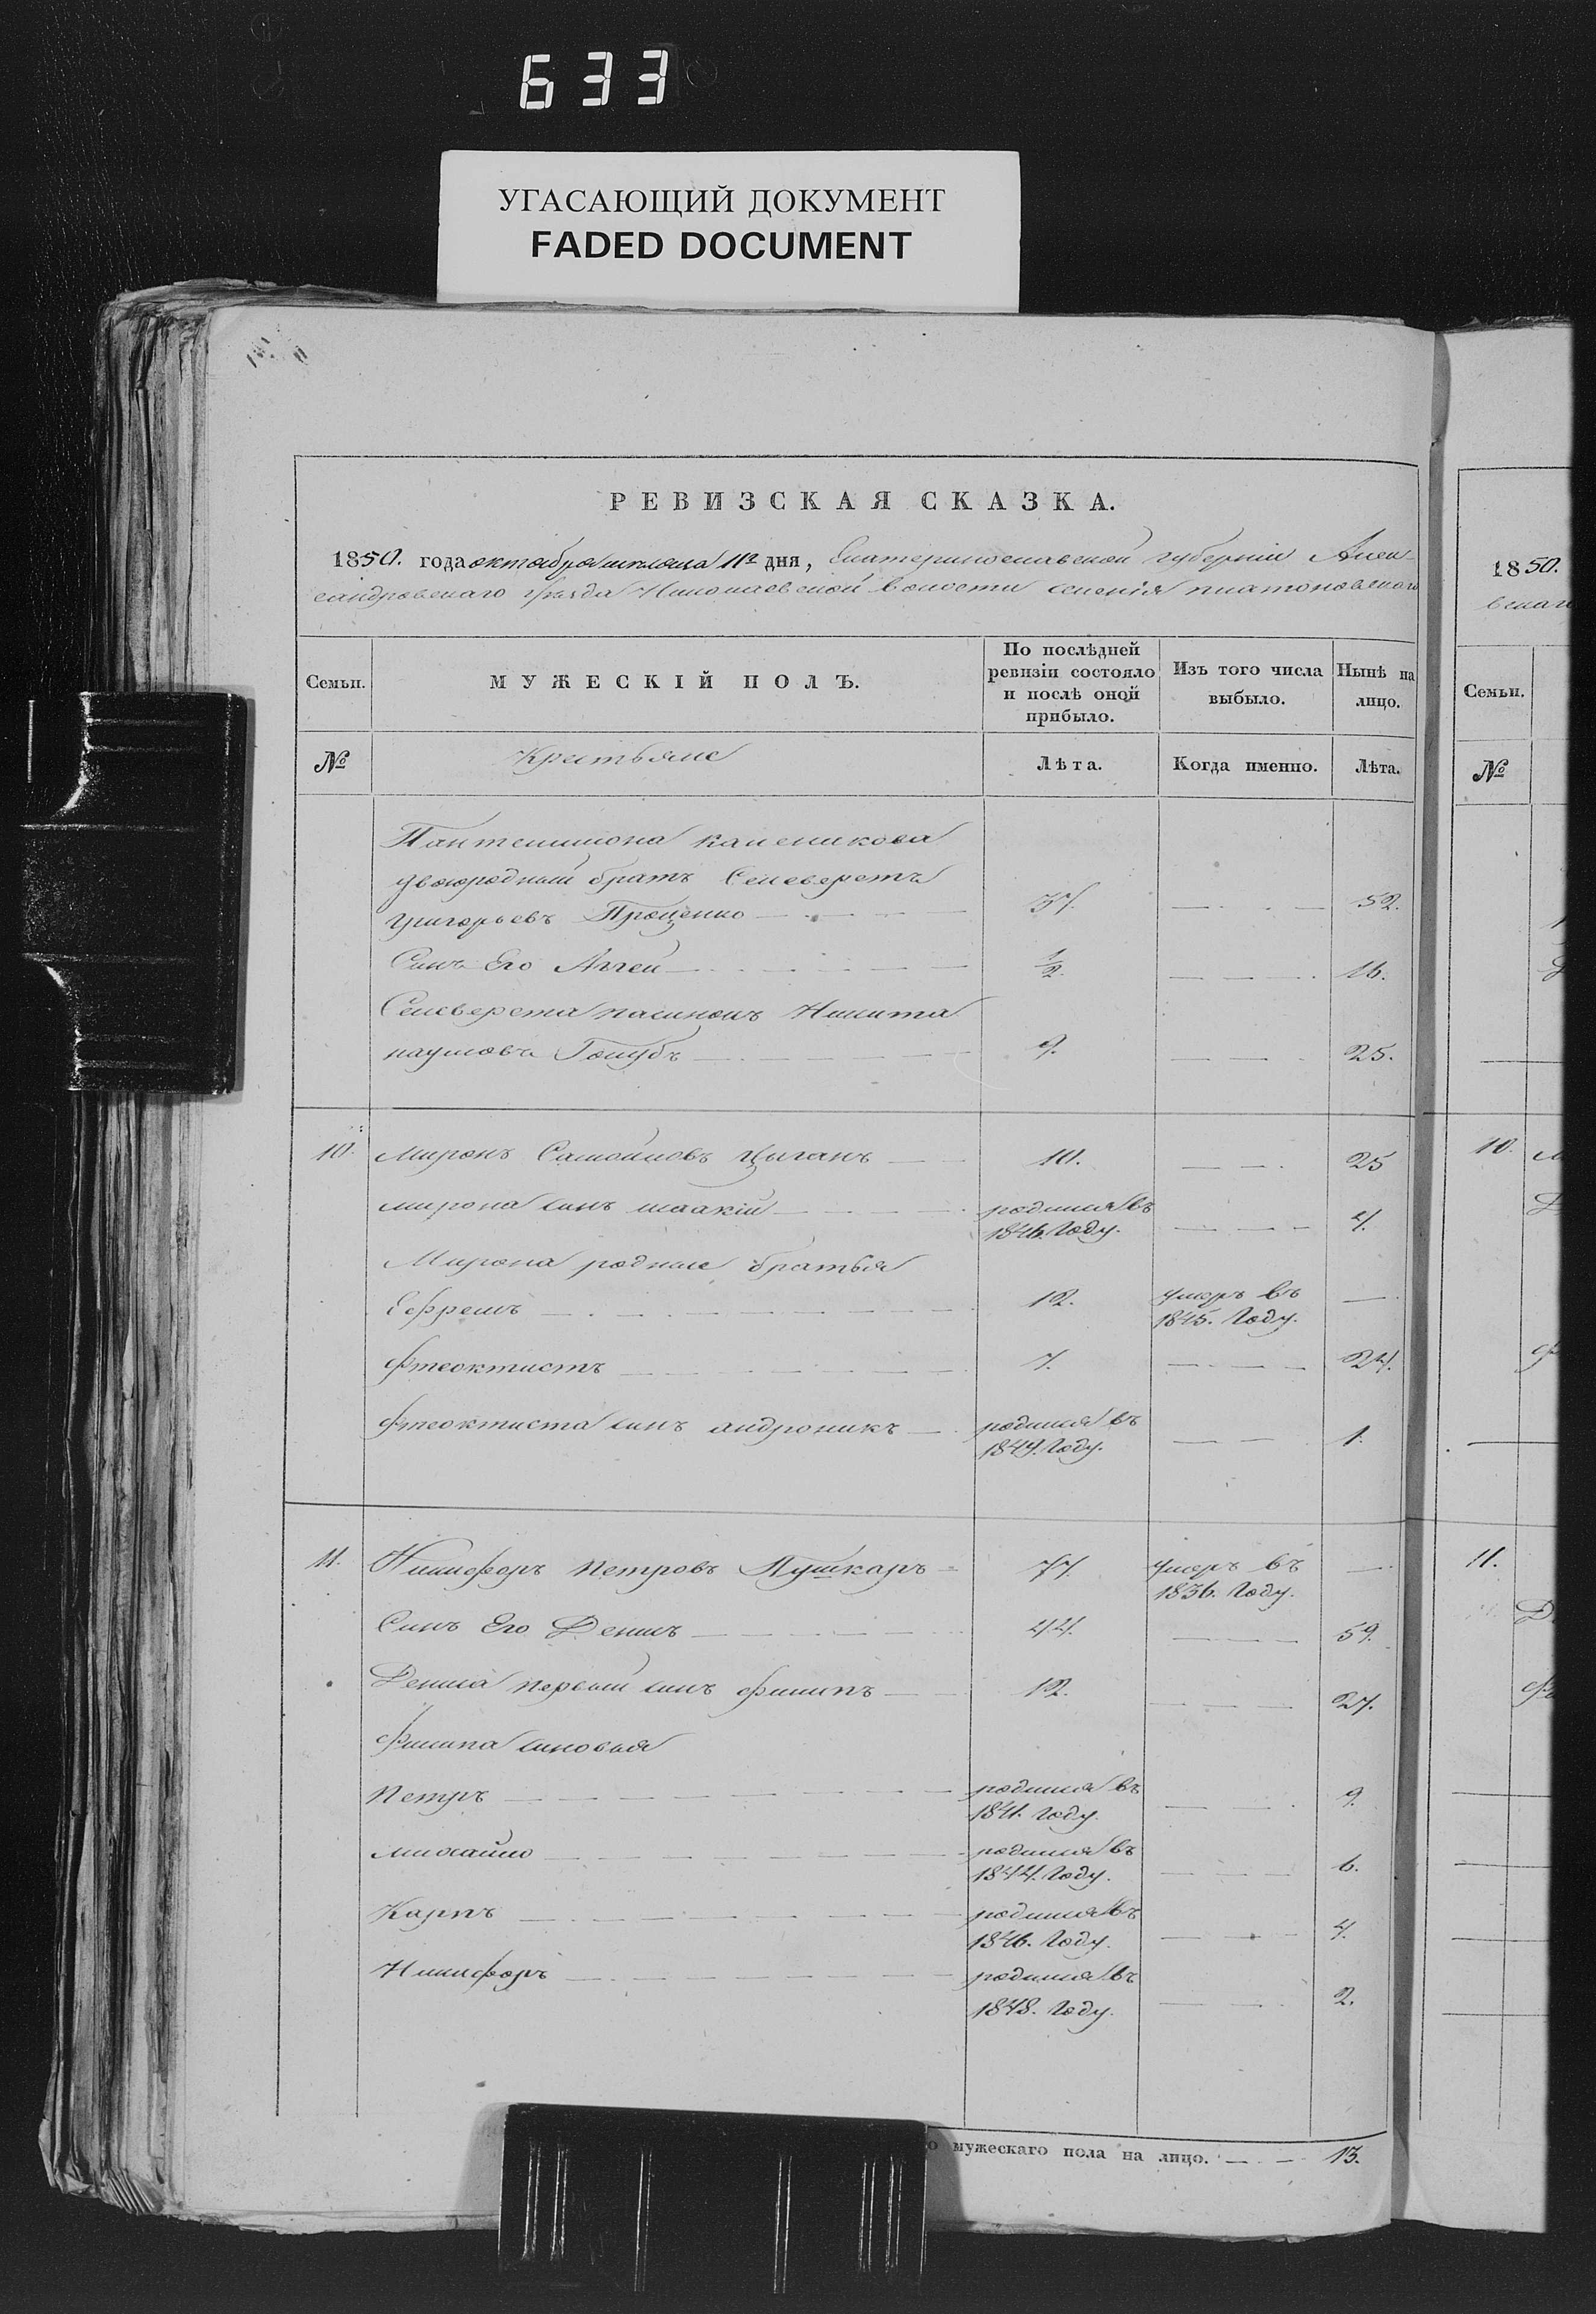 633
УГАСАЮЩИЙ ДОКУМЕНТ
FADED DOCUMENT
РЕВИЗСКАЯ СКАЗКА.
1850. года октября месяца 11го дня, Екатеринославской губернiи Алек-
сандровскаго уѣзда Николаевской волости селенiя платоновскаго
Семьи.
МУЖЕСКІЙ ПОЛЪ.
По послѣдней ревизіи состояло и послѣ оной прибыло.
Изъ того числа выбыло.
Нынѣ на лицо.
№
Крестьяне
Лѣта.
Когда именно.
Лѣта.
Пантелимона
двоюродный братъ Селеверстъ
григорьевъ Проценко 37. 52.
Синъ Его Аггей 1/2 16.
Селеверста пасинокъ Никита
наумовъ Голубъ 9. 25.
10. Миронъ Самойловъ Цыганъ 10. 25
мирона синъ исаакiй родился въ 1846. Году. 4.
Мирона родные братья
Ефремъ 12. умеръ въ 1845. Году.
фтеоктистъ 7. 24.
фтеоктиста синъ андроникъ родился въ 1849. Году. 1.
11. Никифоръ Петровъ Пушкаръ 77. умеръ въ 1836. Году.
Синъ Его Денисъ 44. 59.
Дениса первый синъ филипъ 12. 27.
филипа синовья
Петръ родился въ 1841. Году. 9.
михайло родился въ 1844. Году. 6.
Карпъ родился въ 1846. Году. 4.
Никифоръ родился въ 1848. Году. 2.
о мужескаго пола на лицо. 13.
1850.
Семьи.
№
10.
11.